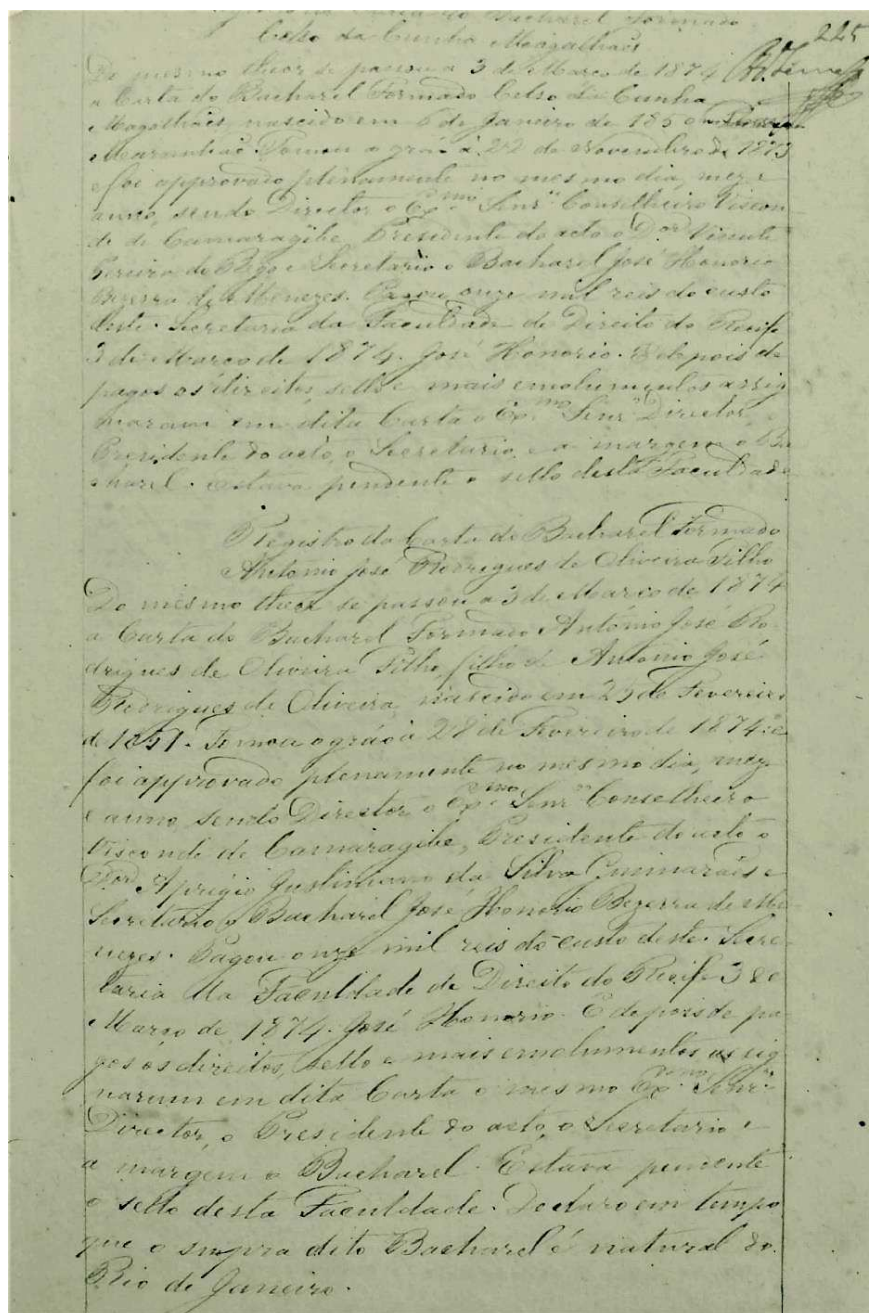 Registro da Carta do Bacharel Formado
Celso da Cunha Magalhães
225
Do mesmo theor se passou a 3 de Março de 1874
a Carta do Bacharel Formado Celso da Cunha
Magalhães, nascido em de Janeiro de 185
Maranhão. Tomou o gráo á 22 de Novembro de 1873
e foi approvado plenamente no mesmo dia, mez e
anno, sendo Director o Exmo Senr Conselheiro Viscon
de de Camaragibe, Presidente do acto o Dor Vicente
Pereira do Rego e Secretario o Bacharel José Honorio
Bezerra de Menezes. Pagou onze mil reis do custo
deste. Secretaria da Faculdade de Direito do Recife
3 de Março de 1874. José Honorio. E depois de
pagos os direitos, sello e mais emolumentos assig
naram em dita Carta o Exmo Senr Director, o
Presidente do acto, o Secretario, e a margem o Ba
charel. Estava pendente o sello desta Faculdade
Registro da Carta do Bacharel Formado
Antonio José Rodrigues de Oliveira Filho
Do mesmo theor se passou a 3 de Março de 1874
a Carta do Bacharel Formado António José Ro
drigues de Oliveira Filho, filho de Antonio José
Rodrigues de Oliveira, nascido em 25 de Fevereiro
de 1851. Tomou o gráo á 28 de Fevereiro de 1874 e
foi approvado plenamente no mesmo dia, mez
e anno, sendo Director o Exmo Senr Conselheiro
Visconde de Camaragibe, Presidente do acto o
Dor Aprigio Justiniano da Silva Guimarães e
Secretario o Bacharel José Honorio Bezerra de Me
nezes. Pagou onze mil reis do custo deste. Secre
taria da Faculdade de Direito do Recife 3 de
Março de 1874. José Honorio. E depois de pa
gos os direitos, sello e mais emolumentos assig
naram em dita Carta o mesmo Exmo Senr
Director, o Presidente do acto, o Secretario e
a margem o Bacharel. Estava pendente
o sello desta Faculdade. Declaro em tempo
que o supra dito Bacharel é natural do
Rio de Janeiro.